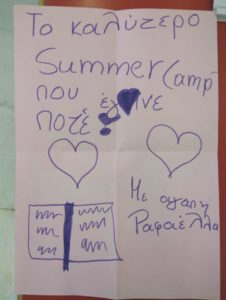 Το καλύτερο
Summer Camp
που έγινε
ποτέ
Με αγαπη
Ραφαέλλα